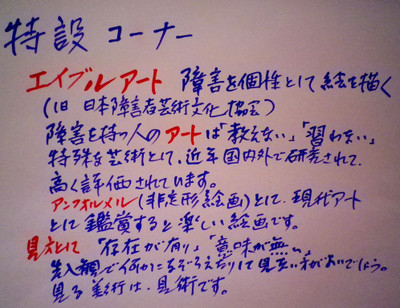 特設 コーナー
エイブルアート 障害を個性として絵を描く
(旧 日本障害者芸術文化協会)
障害を持つ人のアートは「教えない」「習わない」
特殊な芸術として、近年国内外で研究されて
高く評価されています。
アンフォルメル(非定形絵画)として、現代アート
として鑑賞すると楽しい絵画です。
見方として 「存在が有り」「意味が無い」
先入観で何かになぞらえたりして見ない方がよいでしょう。
見る美行は、見術です。